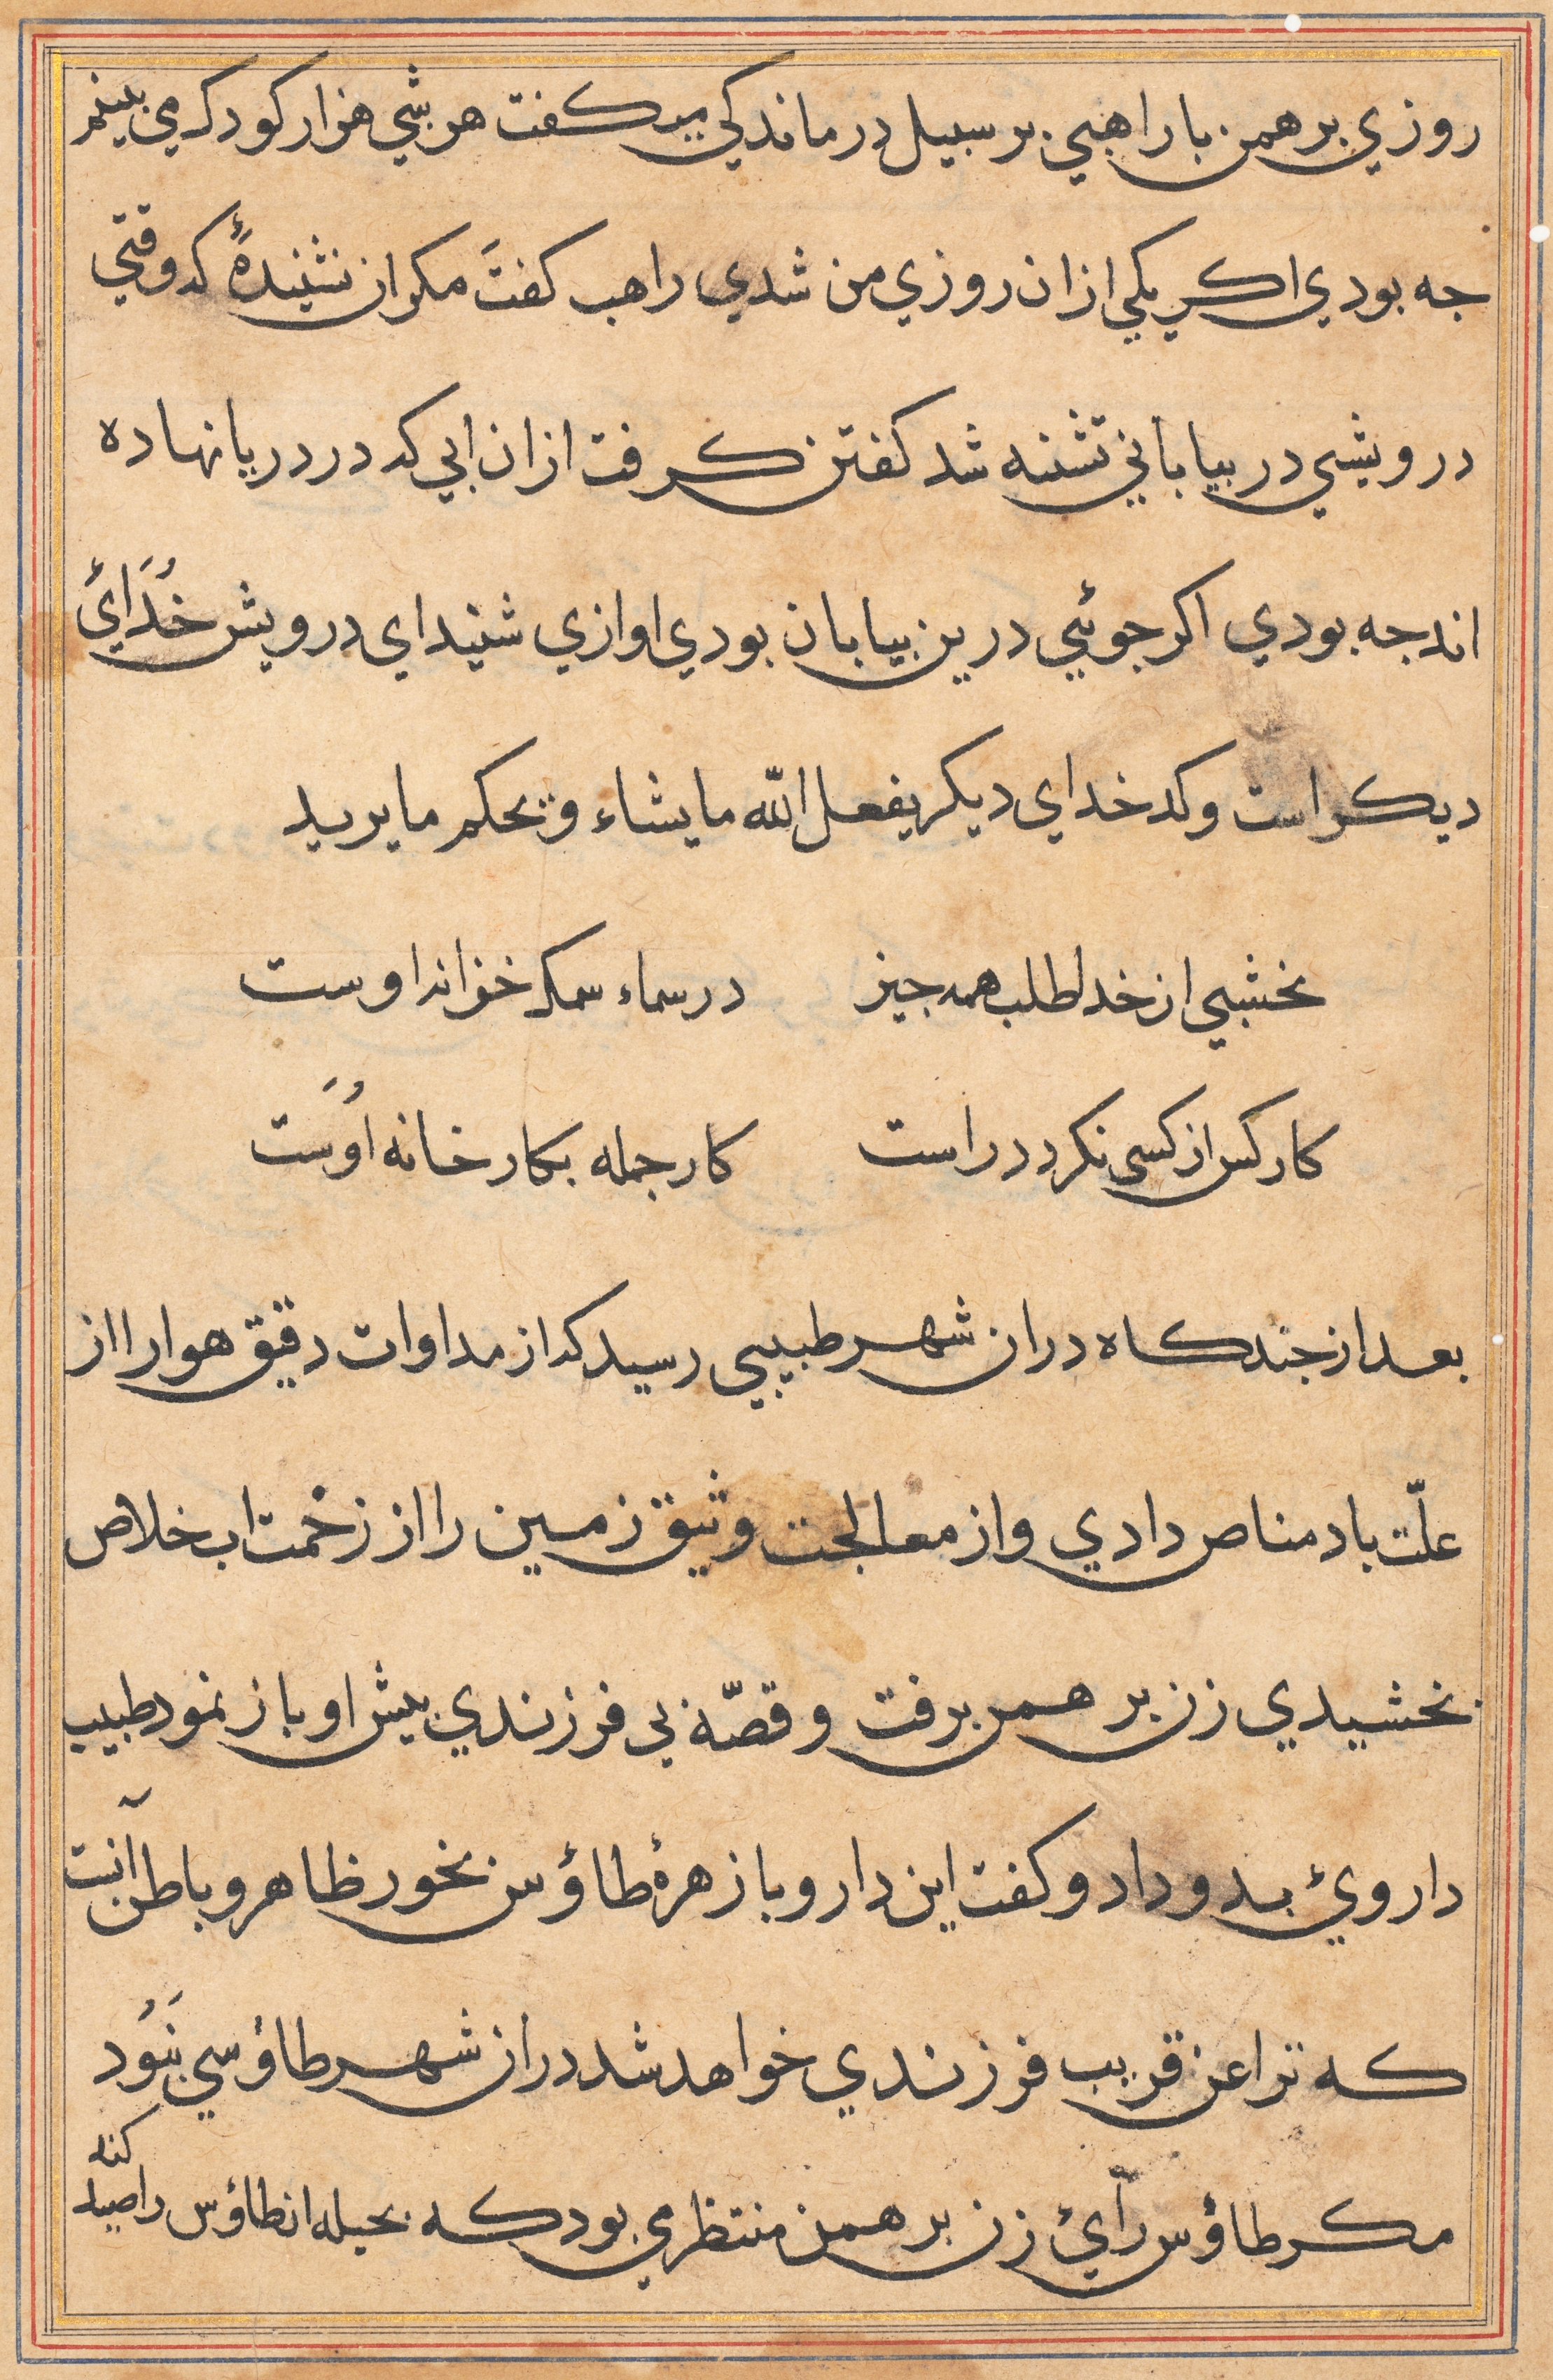 روزي برهمن با راهبي بر سبيل درماندكي مي كفت هر شبي هزار كودك مي بينم
جه بودي اكر يكي ازان روزي من شدي راهب كفتَ مكر از نشنيدهٔ كه وقتي
درويشي در بياباني تشنه شد كفتن كرفت ازان ابي كه در دريا نهاده
اند جه بودي اكر جوئي درين بيابان بودي اوازي شنيد اي درويش خُدَائ
ديكر است و كد خداي ديكر يفعل الله ما يشاء و يحكم ما يريد
نخشبي از خدا طلب همه جيز در سماء سمك خزانه اوست
كار كس از كسى نكردد راست كار جمله بكار خانه اوُست
بعد از جند كاه دران شهر طبيبي رسيد كه از مداوات دقيق هوا را از
علّت باد مناص دادي و از معالجت وثيق زمين را از زحْمت اب خلاص
بخشيدي زن برهمن برفت و قصّهٔ بي فرزندي بيش او باز نمود طبيب
داروئ بدو داد و كفت اين دارو با زهرهٔ طاؤس بخور ظاهر و باطن آنست
كه ترا عن قريب فرزندي خواهد شد دران شهر طاؤسي نبَوُد
مكر طاؤس رآئ زن برهمن منتظر مي بود كه بحيله ان طاؤس را صيد كند